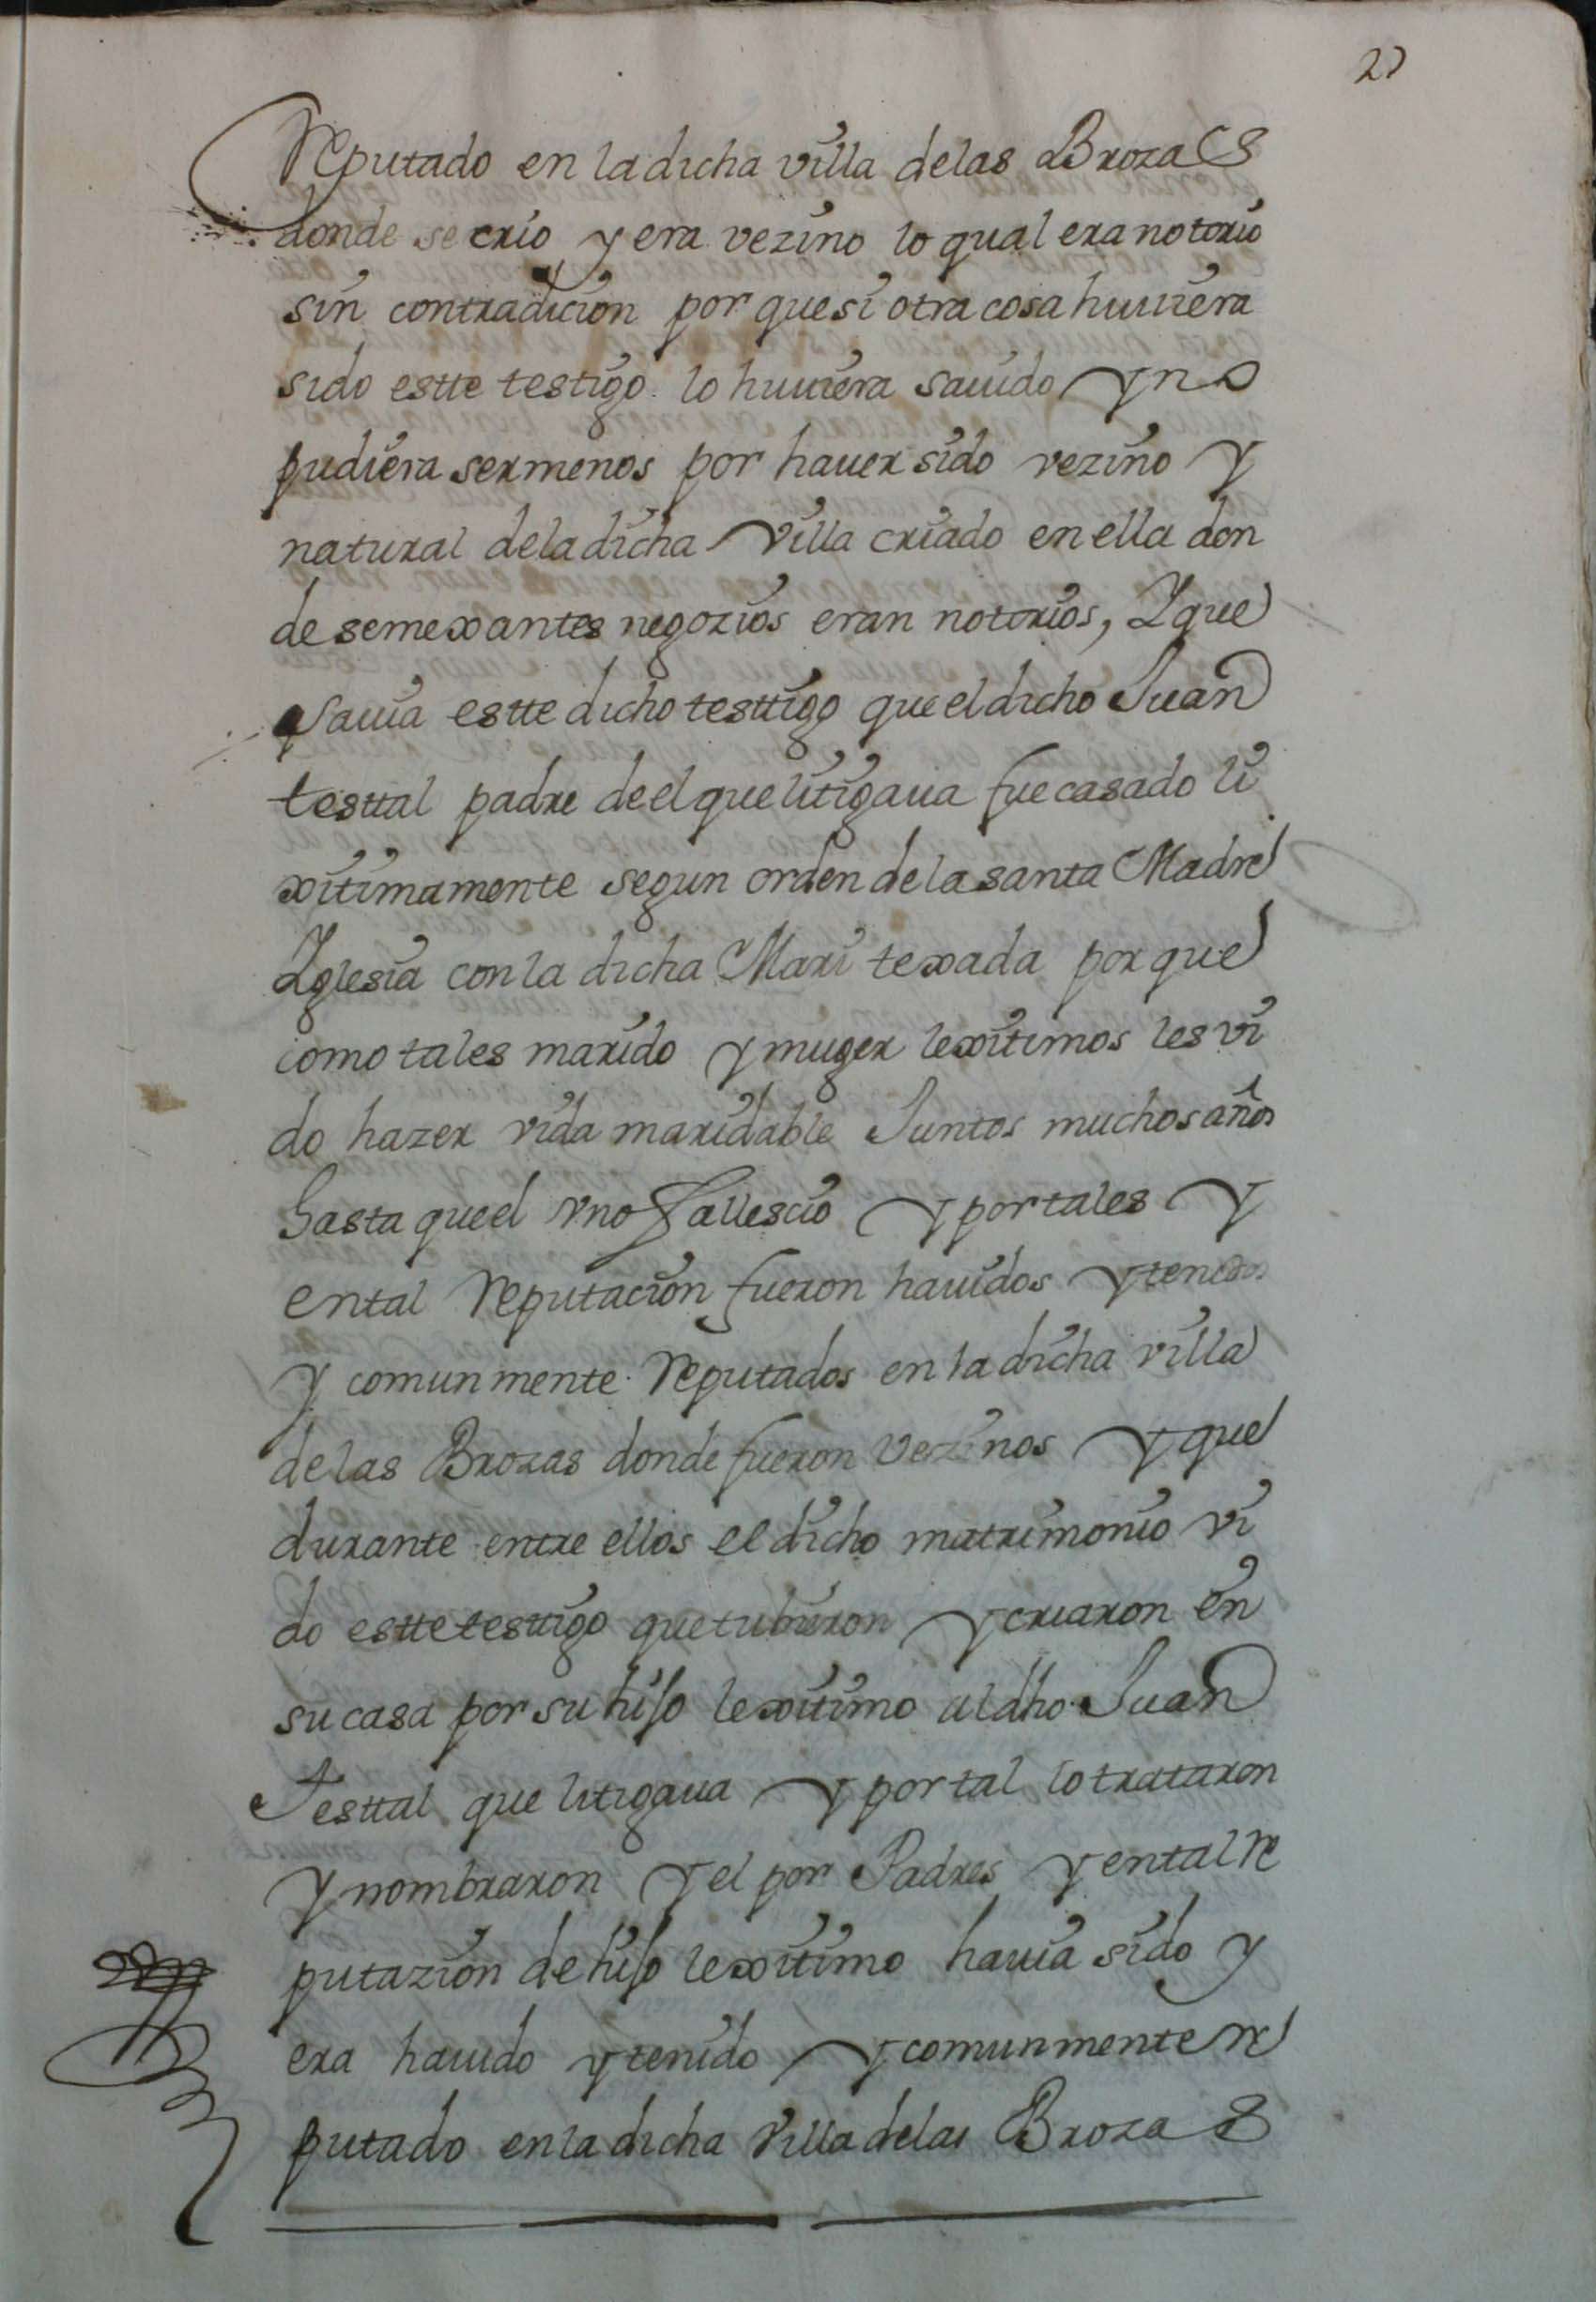 27
Reputado en la dicha villa de las Brozas
donde se crio y era vezino lo qual era notorio
sin contradicion por que si otra cosa huuiera
sido estte testigo lo huuiera sauido y no
pudiera ser menos por hauer sido vezino y
natural de la dicha Villa criado en ella don
de semexantes negozios eran notorios, Y que
sauia estte dicho testtigo que el dicho Juan
testtal padre de el que litigaua fue casado li
xitimamente segun orden de la santa Madre
Yglesia con la dicha Mari texada por que
como tales marido y muger lexitimos les vi
do hazer vida maridable Juntos muchos años
hasta que el vno fallescio y por tales y
en tal Reputacion fueron hauidos y tenidos
y comunmente Reputados en la dicha villa
de las Brozas donde fueron Vezinos y que
durante entre ellos el dicho matrimonio vi
do estte testtigo que tubieron y criaron en
su casa por su hijo lexitimo al dho Juan
Testtal que litigaua y por tal lo trataron
y nombraron y el por Padres y en tal Re
putazion de hijo lexitimo hauia sido y
era hauido y tenido y comunmente re
putado en la dicha Villa de las Brozas